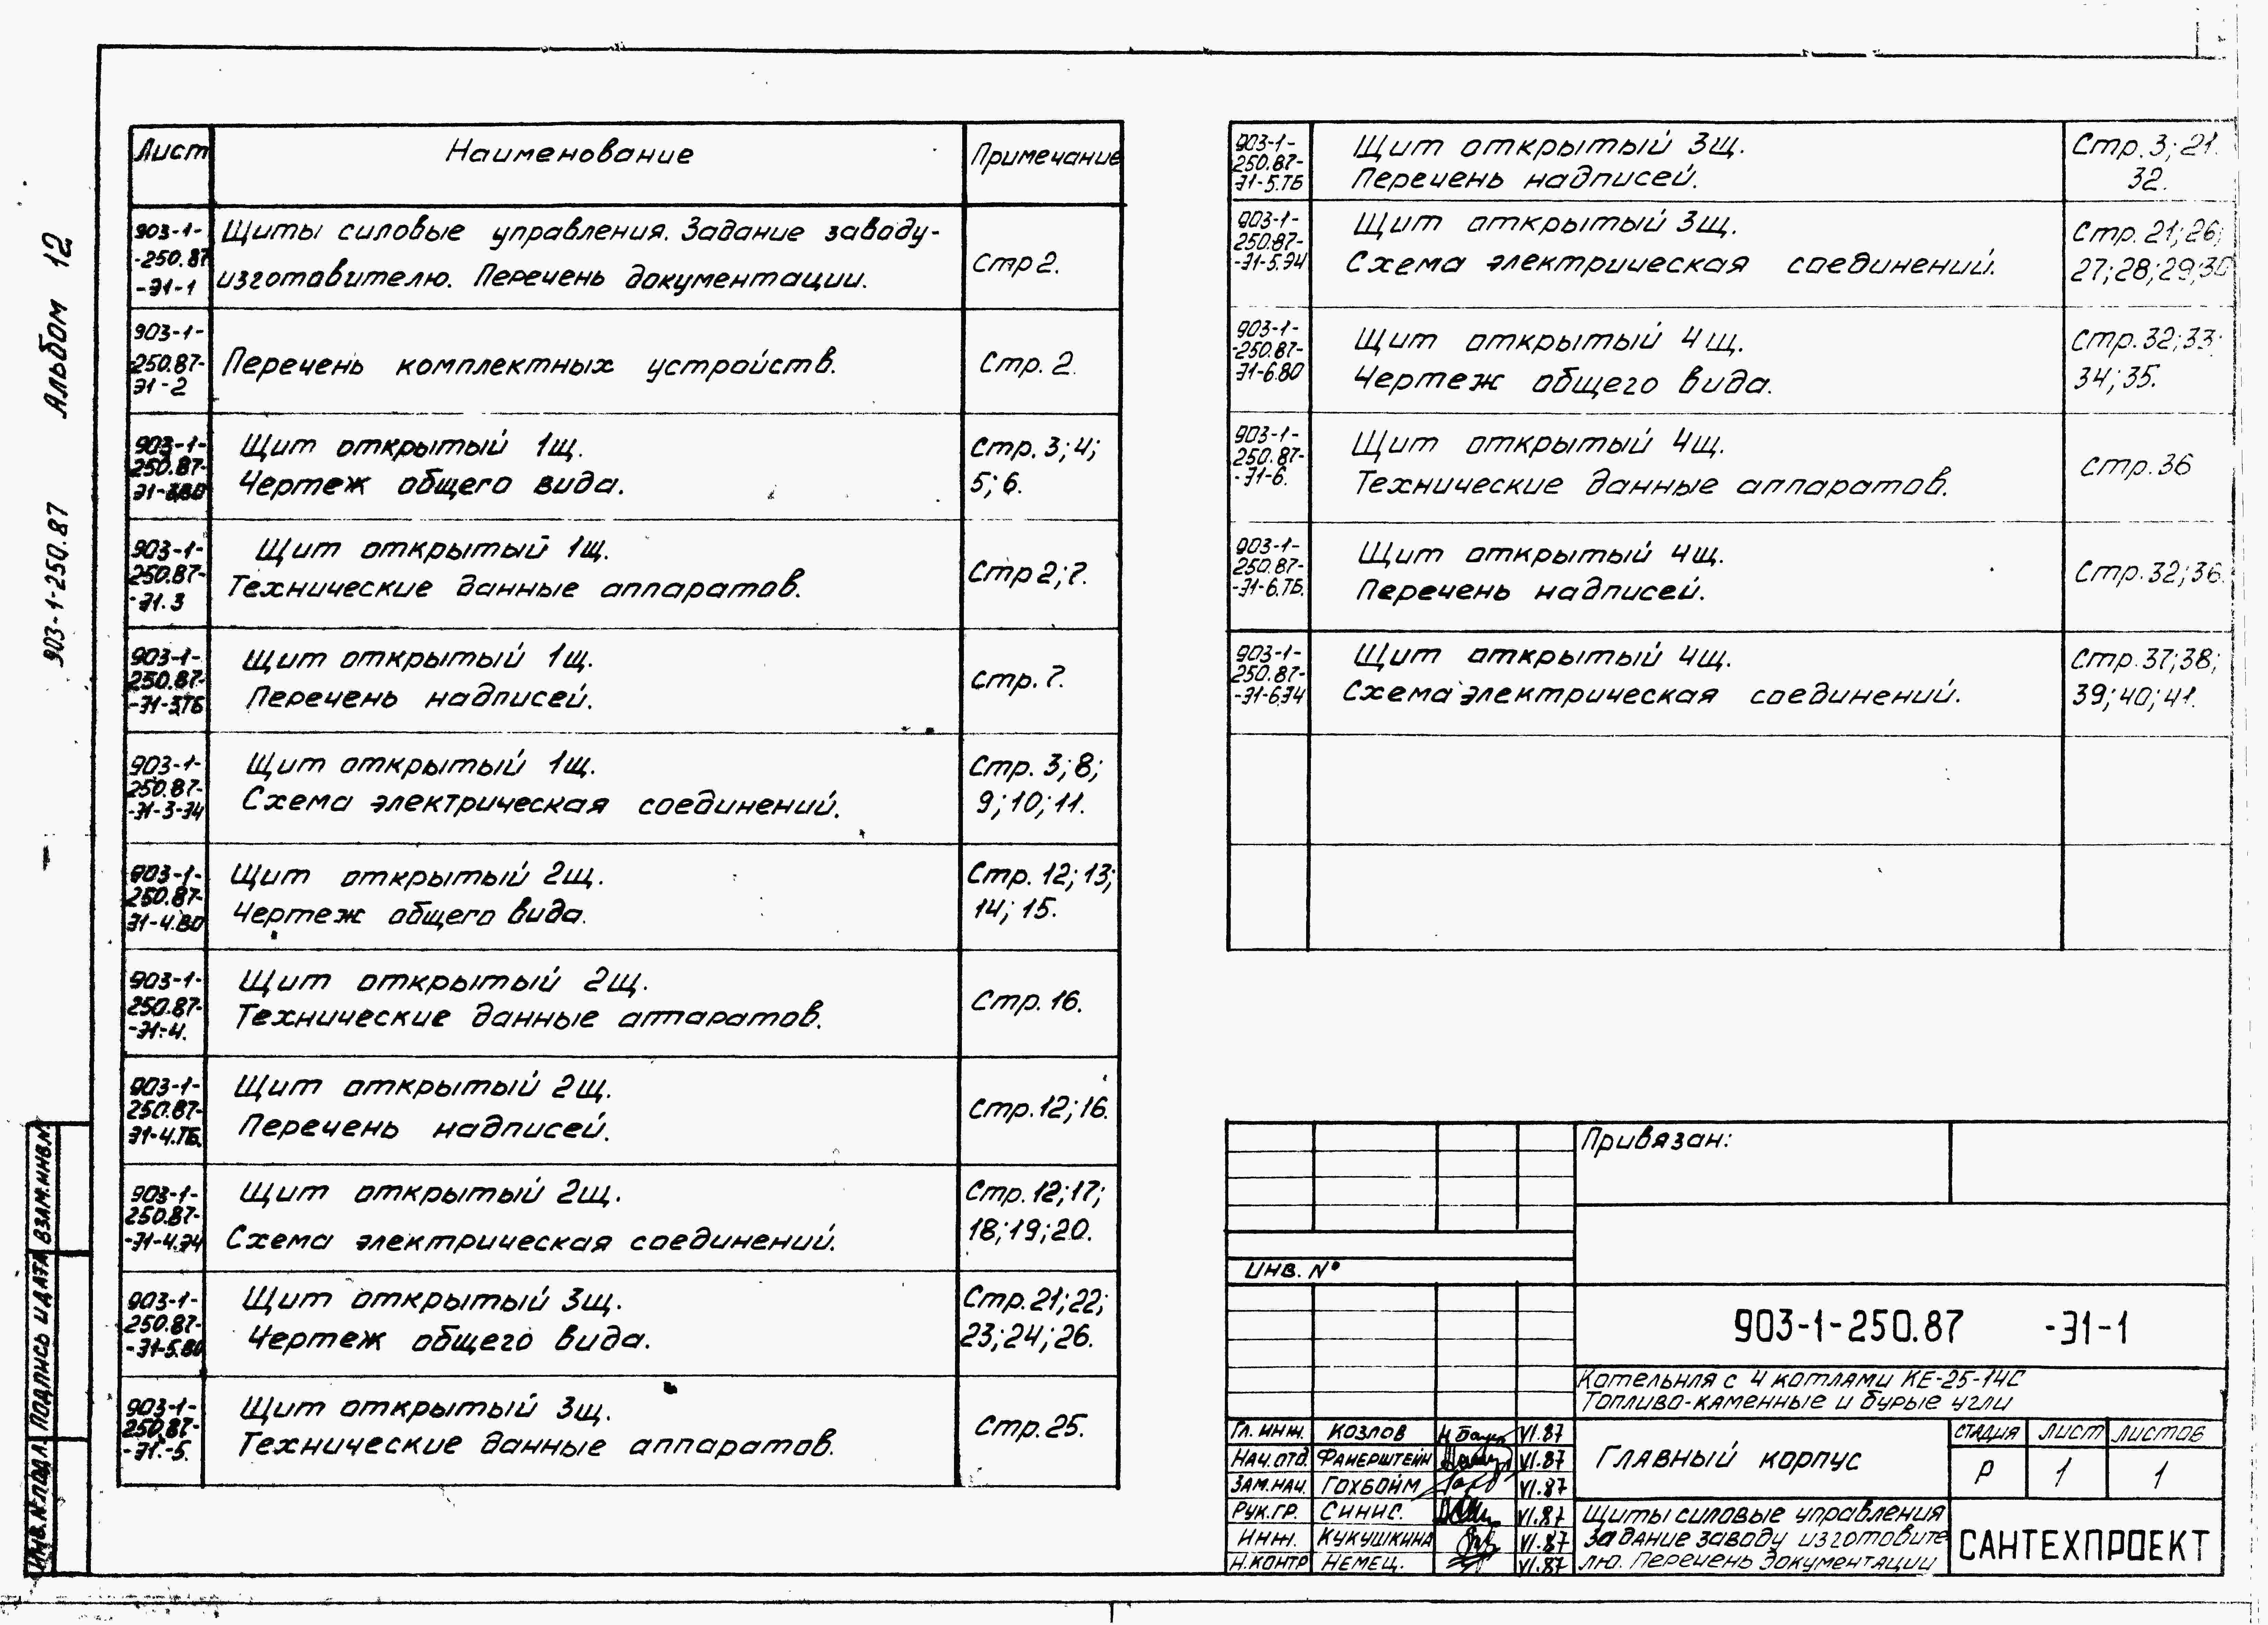 Альбом 12
903-1-250.87
Лист Наименование Примечание
903-1-
-250.87
-Э1-1
Щиты силовые управления. Задание заводу-
изготовителю. Перечень документации.
Стр 2.
903-1-
250.87-
Э1-2
Перечень комплектных устройств.
Стр. 2.
903-1-
250.87-
Э1-3.ВО
Щит открытый 1щ.
Чертеж общего вида.
Стр. 3; 4;
5; 6.
903-1-
250.87-
-Э1.3
Щит открытый 1щ.
Технические данные аппаратов.
Стр 2; 7.
903-1-
250.87-
-Э1-3.ТБ
Щит открытый 1щ.
Перечень надписей.
Стр. 7.
903-1-
250.87-
-Э1-3-Э4
Щит открытый 1щ.
Схема электрическая соединений.
Стр. 3; 8;
9; 10; 11.
903-1-
250.87-
Э1-4.ВО
Щит открытый 2щ.
Чертеж общего вида.
Стр. 12; 13;
14; 15.
903-1-
250.87-
-Э1-4.
Щит открытый 2щ.
Технические данные аппаратов.
Стр. 16.
903-1-
250.87-
Э1-4.ТБ.
Щит открытый 2щ.
Перечень надписей.
Стр. 12; 16.
903-1-
250.87-
-Э1-4.Э4
Щит открытый 2щ.
Схема электрическая соединений.
Стр. 12; 17;
18; 19; 20.
903-1-
250.87-
-Э1-5.ВО
Щит открытый 3щ.
Чертеж общего вида.
Стр. 21; 22;
23; 24; 26.
903-1-
250.87-
-Э1.-5.
Щит открытый 3щ.
Технические данные аппаратов.
Стр. 25.
903-1-
250.87-
Э1-5.ТБ
Щит открытый 3щ.
Перечень надписей.
Стр. 3; 21.
32.
903-1-
250.87-
-Э1-5.Э4
Щит открытый 3щ.
Схема электрическая соединений.
Стр. 21; 26;
27; 28; 29; 30
903-1-
-250.87-
Э1-6.ВО
Щит открытый 4щ.
Чертеж общего вида.
Стр. 32; 33;
34; 35.
903-1-
250.87-
-Э1-6.
Щит открытый 4щ.
Технические данные аппаратов.
Стр. 36
903-1-
250.87-
-Э1-6.ТБ.
Щит открытый 4щ.
Перечень надписей.
Стр. 32; 36.
903-1-
250.87-
-Э1-6.Э4
Щит открытый 4щ.
Схема электрическая соединений.
Стр. 37; 38;
39; 40; 41.
Привязан:
Инв. №
903-1-250.87 -Э1-1
Котельная с 4 котлами КЕ-25-14С
Топливо-каменные и бурые угли
Гл. инж. Козлов VI.87
Нач. отд. Файерштейн VI.87
Зам. нач. Гохбойм VI.87
Рук. гр. Синис. VI.87
Инж. Кукушкина VI.87
Н. контр Немец. VI.87
Главный корпус
Стадия Лист Листов
Р 1 1
Щиты силовые управления
Задание заводу изготовите
лю. Перечень документации
САНТЕХПРОЕКТ
Взам. инв. №
Подпись и дата
Инв. № подл.